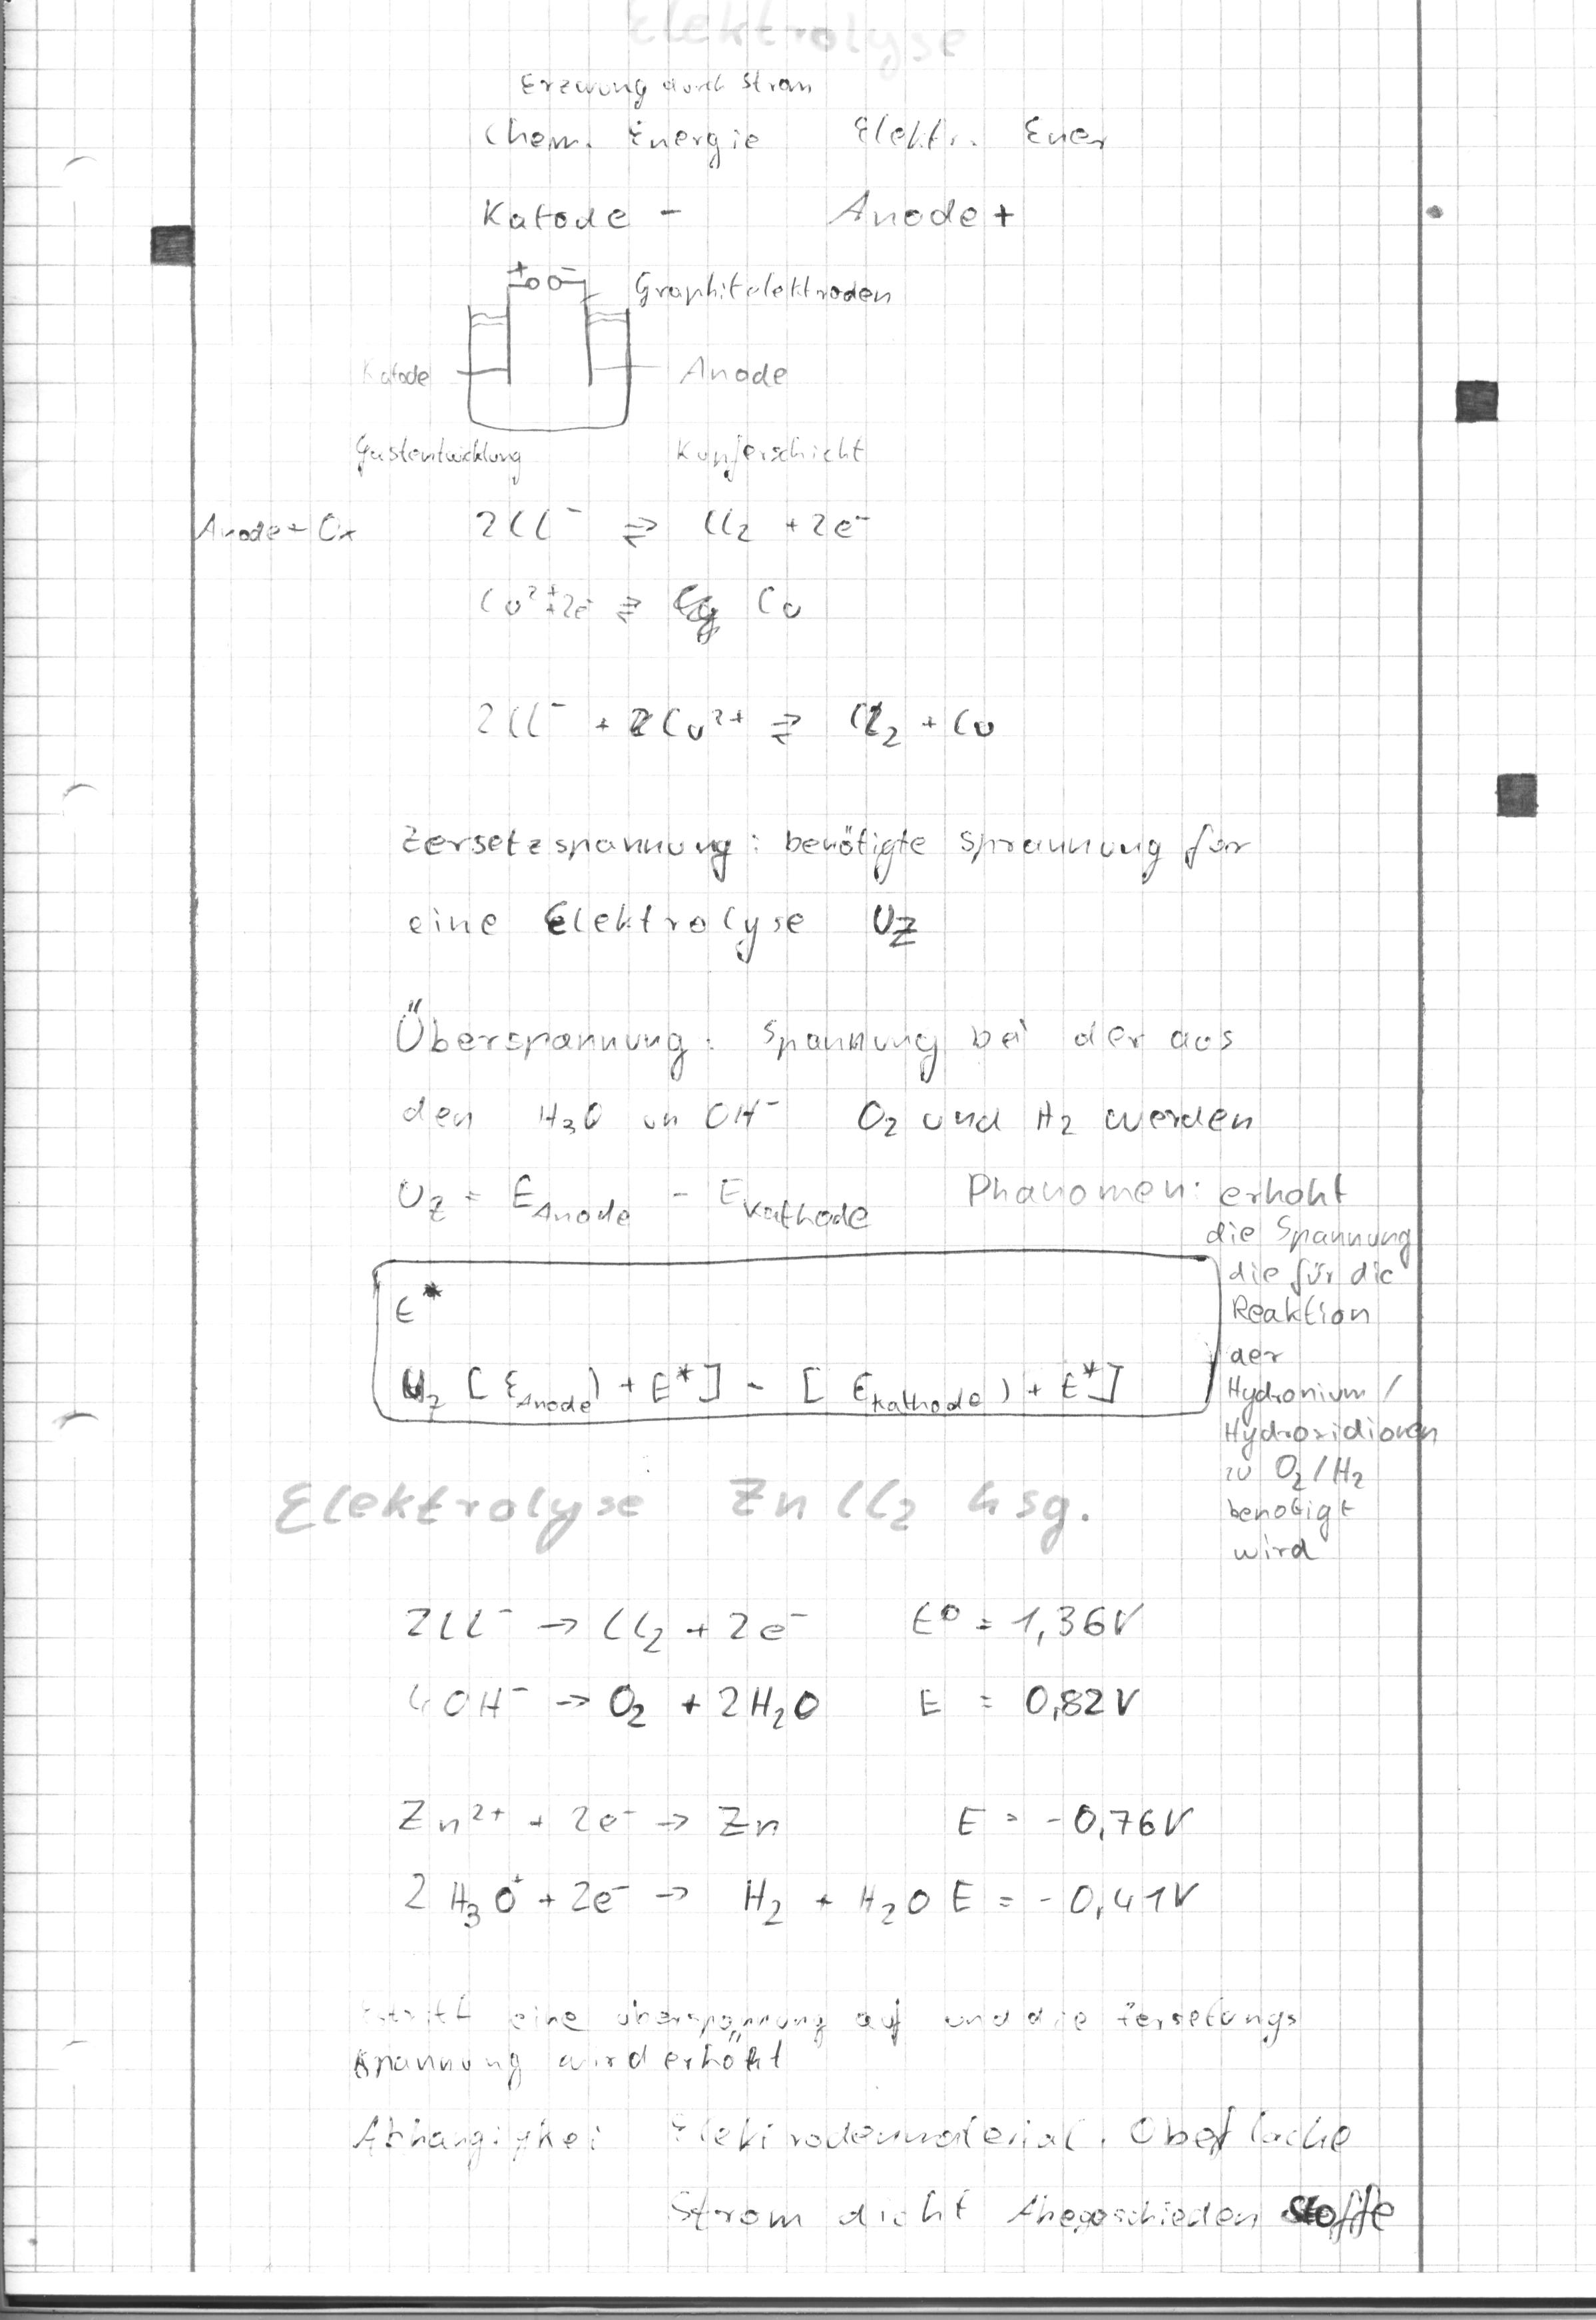 Elektrolyse
Erzwung durch Strom
Chem. Energie Elektr. Ener
Katode - Anode +
+ -
Graphitelektroden
Katode Anode
Gasentwicklung Kupferschicht
Anode + Ox 2Cl⁻ ⇌ Cl₂ + 2e⁻
Cu²⁺ + 2e⁻ ⇌ Cu
2Cl⁻ + Cu²⁺ ⇌ Cl₂ + Cu
Zersetzspannung: benötigte Sprannung für
eine Elektrolyse Uz
Überspannung: Spannung bei der aus
den H₃O un OH⁻ O₂ und H₂ werden
Uz = E Anode - E Kathode Phanomen: erhoht
die Spannung
die für die
Reaktion
der
Hydronium /
Hydroxidionen
zu O₂/H₂
benotigt
wird
E*
Uz [ E Anode ) + E* ] - [ E Kathode ) + E* ]
Elektrolyse ZnCl₂ Lsg.
2Cl⁻ → Cl₂ + 2e⁻ E⁰ = 1,36V
4OH⁻ → O₂ + 2H₂O E = 0,82V
Zn²⁺ + 2e⁻ → Zn E = -0,76V
2 H₃O⁺ + 2e⁻ → H₂ + H₂O E = -0,41V
eine überspannung auf und die Zersetungs
spannung wird erhöht
Abhangigkei Elektrodenmaterial. Oberflache
Strom dicht Abgeschieden Stoffe